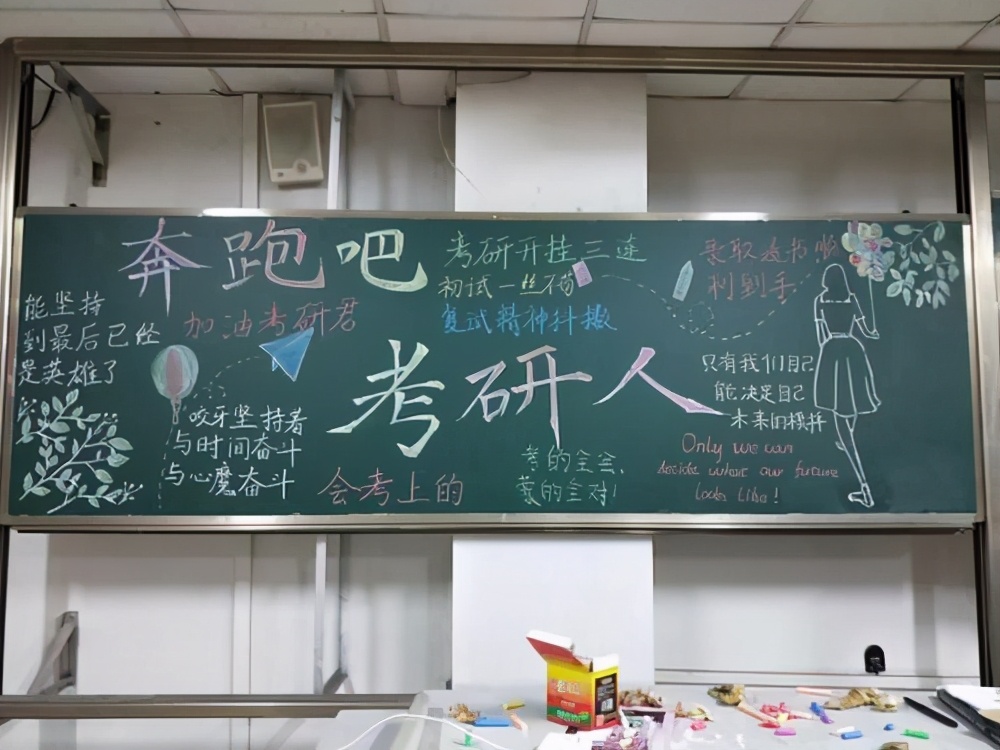 奔跑吧
加油考研君
能坚持
到最后已经
是英雄了
考研开挂三连
初试一丝不苟
复试精神抖擞
录取通知书顺
利到手
考研人
咬牙坚持者
与时间奋斗
与心魔奋斗
会考上的
考的全会、
蒙的全对!
只有我们自己
能决定自己
未来的模样
Only we can
decide what our future
looks like!